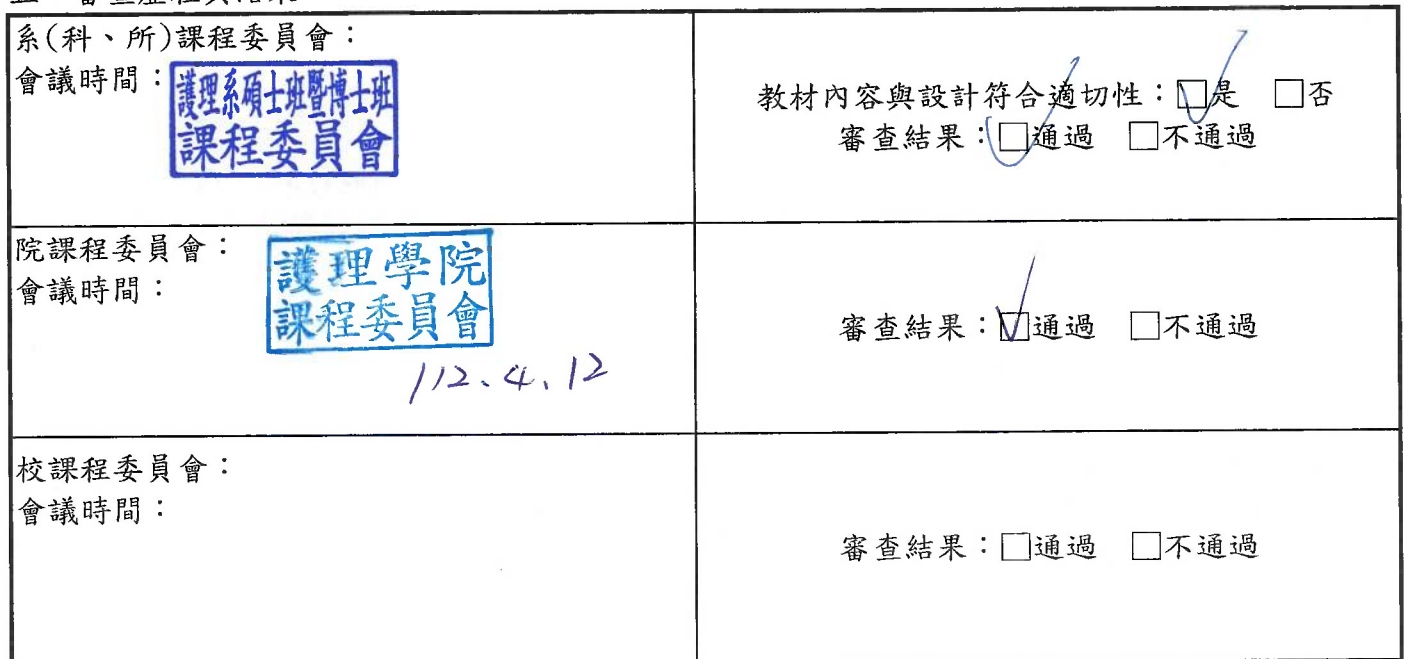 系(科、所)課程委員會：
會議時間：
護理系碩士班暨博士班
課程委員會
教材內容與設計符合適切性：☑是 □否
審查結果：☑通過 □不通過
院課程委員會：
會議時間：
護理學院
課程委員會
112.4.12
審查結果：☑通過 □不通過
校課程委員會：
會議時間：
審查結果：□通過 □不通過